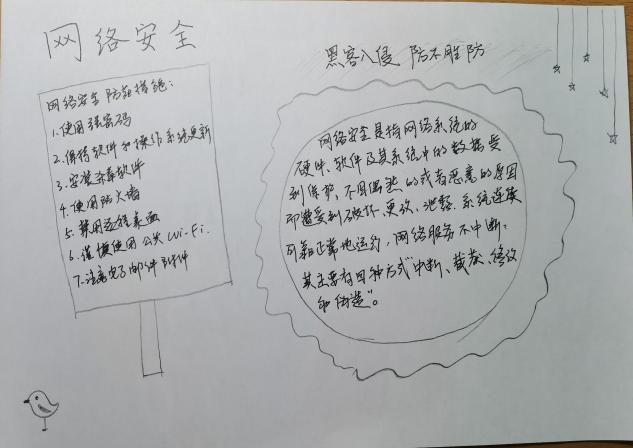 网络安全
黑客入侵 防不胜防
网络安全防范措施：
1.使用强密码
2.保持软件和操作系统更新
3.安装杀毒软件
4.使用防火墙
5.禁用远程桌面
6.谨慎使用公共Wi-Fi.
7.注意电子邮件附件
网络安全是指网络系统的
硬件、软件及其系统中的数据受
到保护，不因偶然的或者恶意的原因
而遭受到破坏、更改、泄露、系统连续
可靠正常地运行，网络服务不中断；
其主要有四种方式“中断、截获、修改
和伪造”。